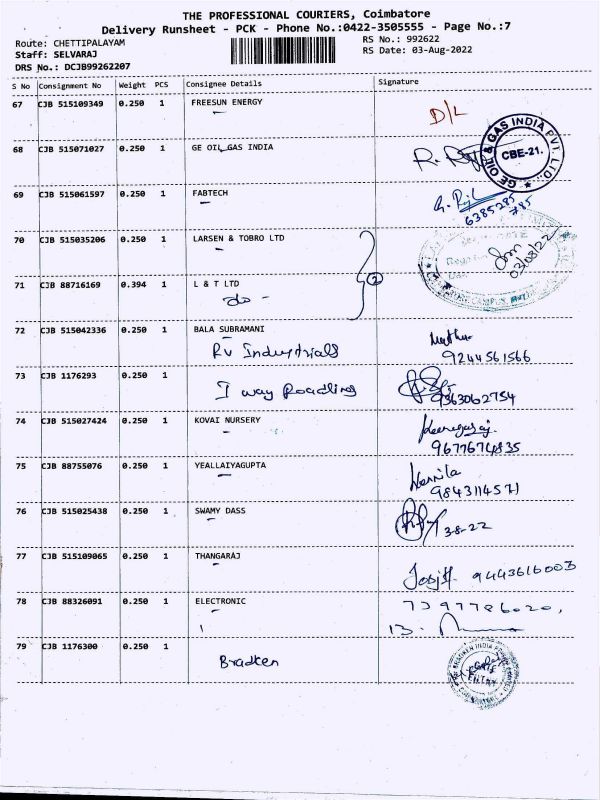 THE PROFESSIONAL COURIERS, Coimbatore
Delivery Runsheet - PCK - Phone No.:0422-3505555 - Page No.:7
Route: CHETTIPALAYAM
RS No.: 992622
Staff: SELVARAJ
RS Date: 03-Aug-2022
DRS No.: DCJB99262207
S No Consignment No Weight PCS Consignee Details Signature
67 CJB 515109349 0.250 1 FREESUN ENERGY D/L
68 CJB 515071027 0.250 1 GE OIL GAS INDIA
GE OIL & GAS INDIA PVT. LTD. CBE-21.
69 CJB 515061597 0.250 1 FABTECH
6385285
785
70 CJB 515035206 0.250 1 LARSEN & TOBRO LTD
03/08/22
71 CJB 88716169 0.394 1 L & T LTD
do - 2
72 CJB 515042336 0.250 1 BALA SUBRAMANI
Rv Industrials 9244561566
73 CJB 1176293 0.250 1
I way Roadling 9363062754
74 CJB 515027424 0.250 1 KOVAI NURSERY
9677674835
75 CJB 88755076 0.250 1 YEALLAIYAGUPTA
9843114571
76 CJB 515025438 0.250 1 SWAMY DASS
3-8-22
77 CJB 515109065 0.250 1 THANGARAJ
9443616003
78 CJB 88326091 0.250 1 ELECTRONIC 7397786020,
79 CJB 1176300 0.250 1
Bradken